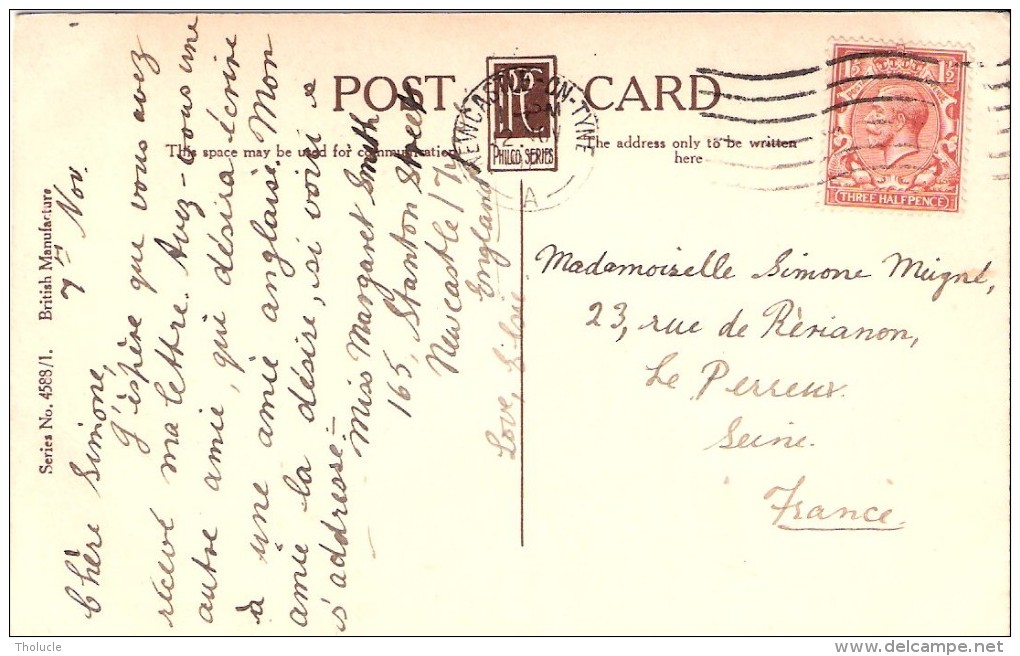 POST CARD
PC
PHILCO SERIES
This space may be used for communication
The address only to be written
here
Series No. 4588/1. British Manufacture
NEWCASTLE-ON-TYNE
A
1½ 1½
THREE HALFPENCE
7th Nov.
Chère Simone,
J'éspère que vous avez
récevé ma lettre. Avez-vous une
autre amie, qui désira écrire
à une amie anglaise. Mon
amie la désire, si voici s
s'addresse—
Miss Margaret Smith
165, Stanton Street
Newcastle / Ty
England
Love,
Mademoiselle Simone Meigné,
23, rue de Rèrianon,
Le Perreux.
Seine.
France.
Tholucle
delcampe.net